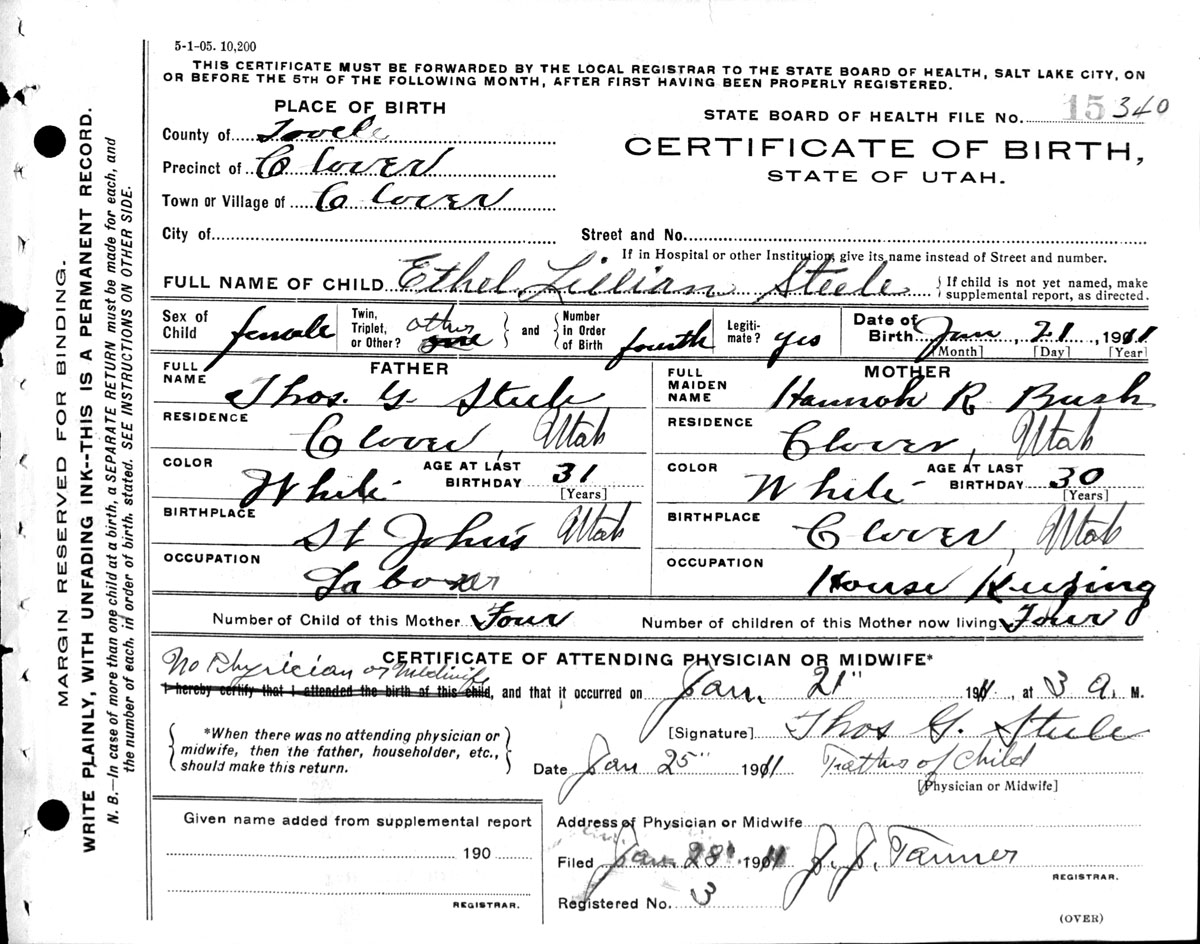 5-1-05. 10,200
THIS CERTIFICATE MUST BE FORWARDED BY THE LOCAL REGISTRAR TO THE STATE BOARD OF HEALTH, SALT LAKE CITY, ON
OR BEFORE THE 5TH OF THE FOLLOWING MONTH, AFTER FIRST HAVING BEEN PROPERLY REGISTERED.
MARGIN RESERVED FOR BINDING.
WRITE PLAINLY, WITH UNFADING INK--THIS IS A PERMANENT RECORD.
N. B.—In case of more than one child at a birth, a SEPARATE RETURN must be made for each, and
the number of each, in order of birth, stated. SEE INSTRUCTIONS ON OTHER SIDE.
PLACE OF BIRTH
County of Tooele
Precinct of Clover
Town or Village of Clover
City of
STATE BOARD OF HEALTH FILE No. 15 340
CERTIFICATE OF BIRTH,
STATE OF UTAH.
Street and No.
If in Hospital or other Institution, give its name instead of Street and number.
FULL NAME OF CHILD Ethel Lillian Steele { If child is not yet named, make
supplemental report, as directed.
Sex of Child female Twin, Triplet, or Other? other and Number in Order of Birth fourth Legiti-mate? yes Date of Birth Jan 21, 1911
[Month] [Day] [Year]
FATHER
FULL NAME Thos. G. Steele
RESIDENCE Clover, Utah
COLOR White AGE AT LAST BIRTHDAY 31
[Years]
BIRTHPLACE St Johns Utah
OCCUPATION Laborer
MOTHER
FULL MAIDEN NAME Hannah R. Bush
RESIDENCE Clover, Utah
COLOR White AGE AT LAST BIRTHDAY 30
[Years]
BIRTHPLACE Clover, Utah
OCCUPATION House Keeping
Number of Child of this Mother Four Number of children of this Mother now living Four
CERTIFICATE OF ATTENDING PHYSICIAN OR MIDWIFE*
No Physician or Midwife
I hereby certify that I attended the birth of this child, and that it occurred on Jan. 21" 1911, at 3 A. M.
*When there was no attending physician or
midwife, then the father, householder, etc.,
should make this return.
[Signature] Thos G. Steele
Date Jan 25" 1911 Father of Child
[Physician or Midwife]
Given name added from supplemental report
190
REGISTRAR.
Address of Physician or Midwife
Filed Jan. 28" 1911 J. J. Tanner
REGISTRAR.
Registered No. 3
(OVER)